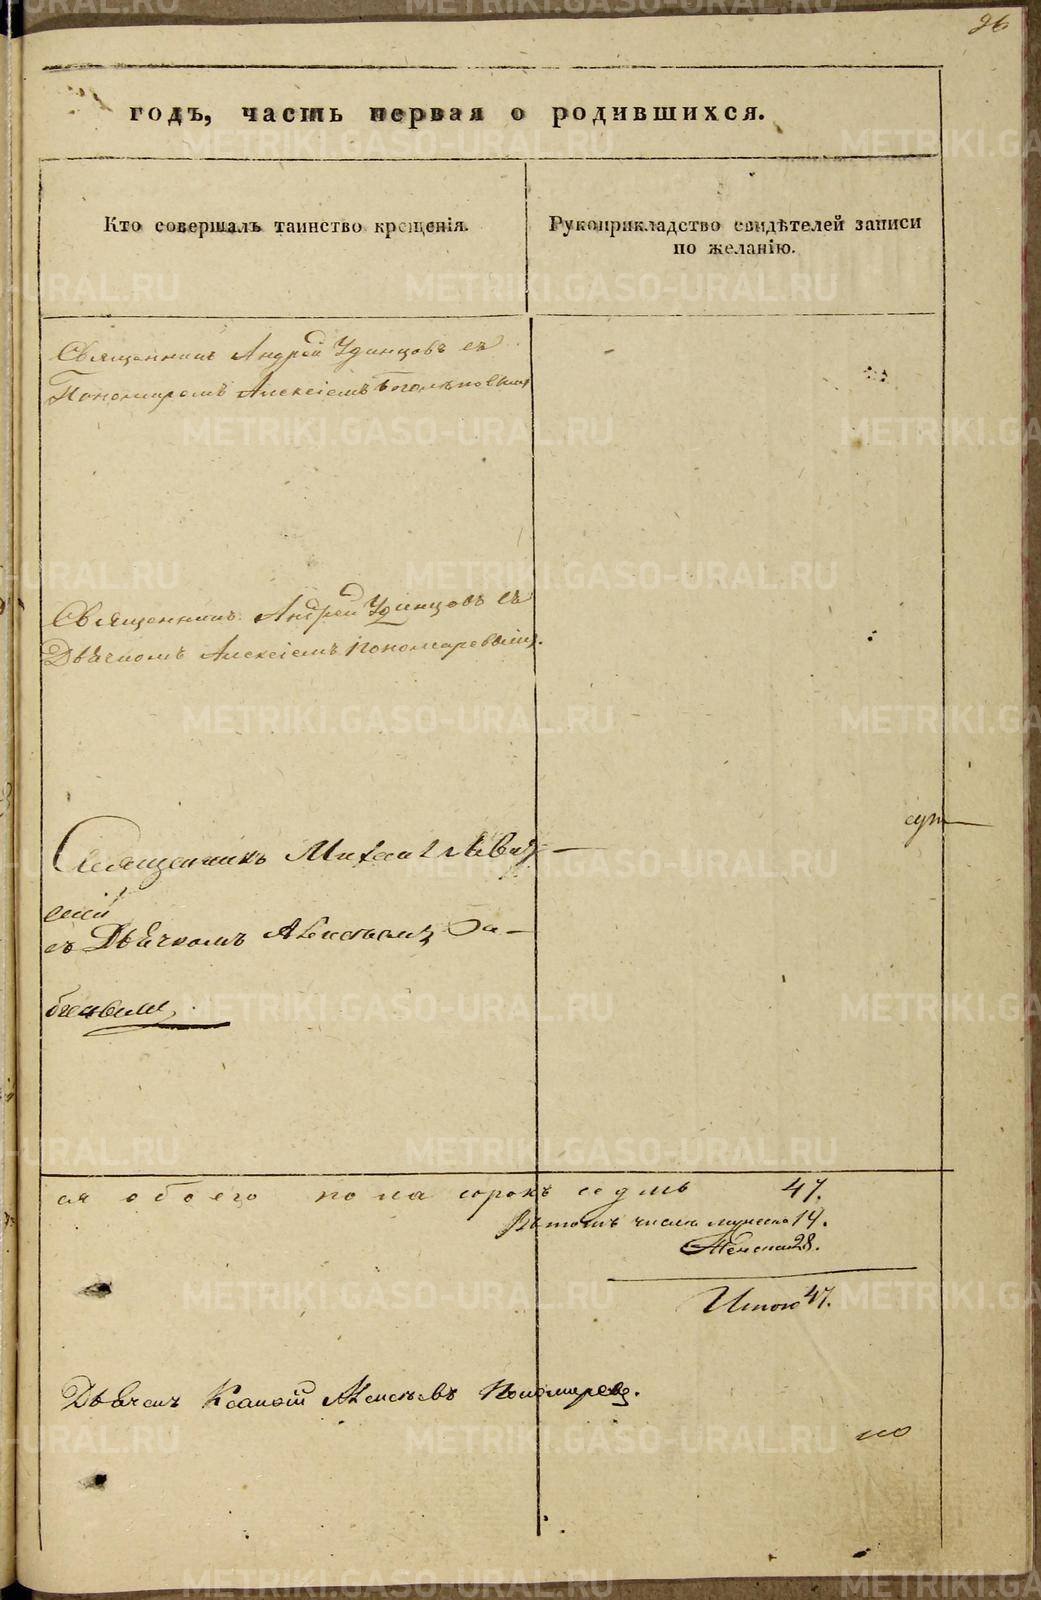 26
годъ, часть первая о родившихся.
Кто совершалъ таинство крещенія.
Рукоприкладство свидѣтелей записи
по желанію.
Священникъ Андрей Удинцовъ съ
Пономаремъ Алексіемъ Боголѣповымъ
Священникъ Андрей Удинцовъ съ
Дьячкомъ Алексіемъ Пономаревымъ.
Священникъ Михаилъ
съ Дьячкомъ
ся обоего пола сорокъ седмь 47.
Въ томъ числѣ мужеска 19.
Женска 28.
Итого 47.
Дьячекъ Алексѣевъ Пономаревъ.
METRIKI.GASO-URAL.RU